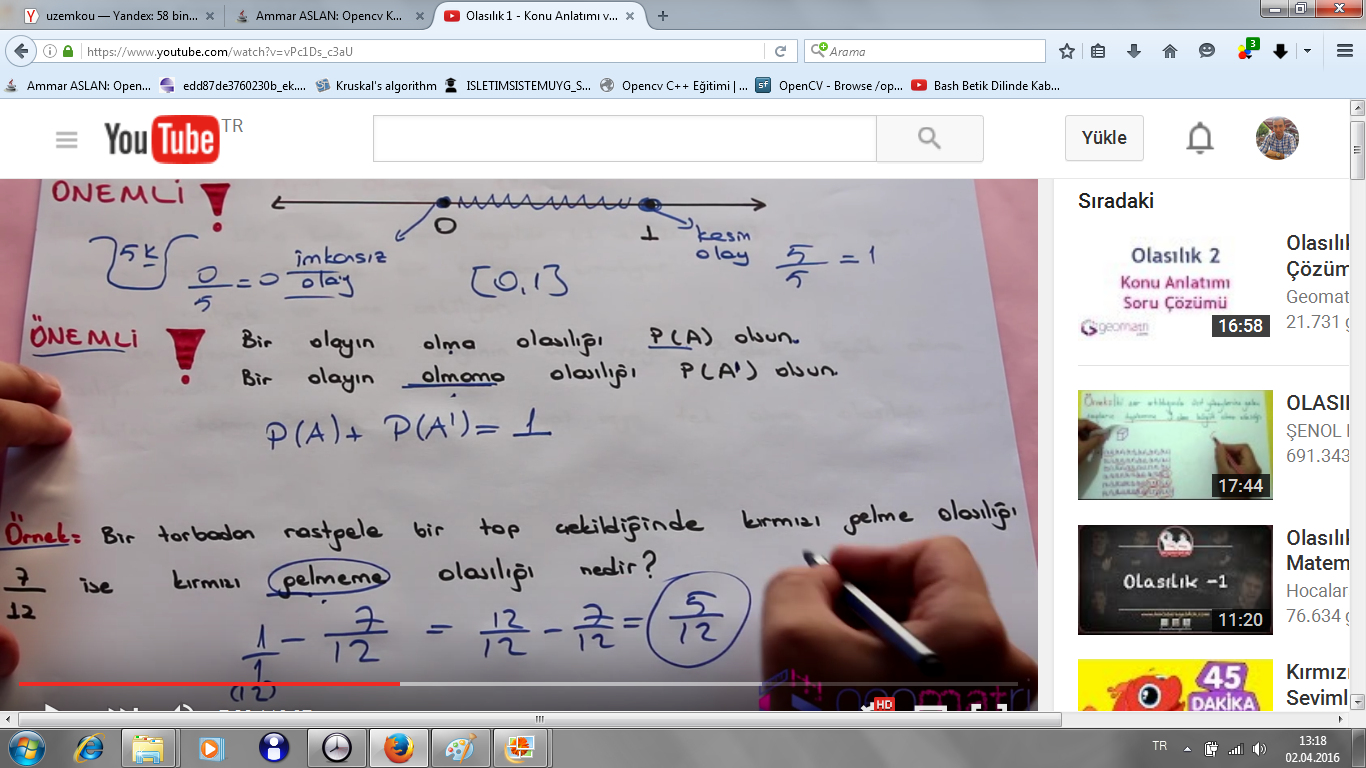 uzemkou — Yandex: 58 bin...
Ammar ASLAN: Opencv K...
Olasılık 1 - Konu Anlatımı v...
https://www.youtube.com/watch?v=vPc1Ds_c3aU
Arama
3
Ammar ASLAN: Open...
edd87de3760230b_ek....
Kruskal's algorithm
ISLETIMSISTEMUYG_S...
Opencv C++ Eğitimi | ...
OpenCV - Browse /op...
Bash Betik Dilinde Kab...
YouTube TR
Yükle
ÖNEMLİ !
0 1
5k
0/5 = 0 imkansız olay
[0,1]
kesin olay 5/5 = 1
ÖNEMLİ ! Bir olayın olma olasılığı P(A) olsun.
Bir olayın olmama olasılığı P(A') olsun.
P(A) + P(A') = 1
Örnek: Bir torbadan rastgele bir top çekildiğinde kırmızı gelme olasılığı
7/12 ise kırmızı gelmeme olasılığı nedir?
1/1 - 7/12 = 12/12 - 7/12 = 5/12
(12)
geomatri
HD
Sıradaki
Olasılık 2
Konu Anlatımı
Soru Çözümü
geomatri
16:58
Olasılı
Çözüm
Geomat
21.731 g
17:44
OLASI
ŞENOL
691.343
Olasılık -1
11:20
Olasılı
Matem
Hocalar
76.634 g
45
DAKİKA
Kırmızı
Sevimli
TR
13:18
02.04.2016